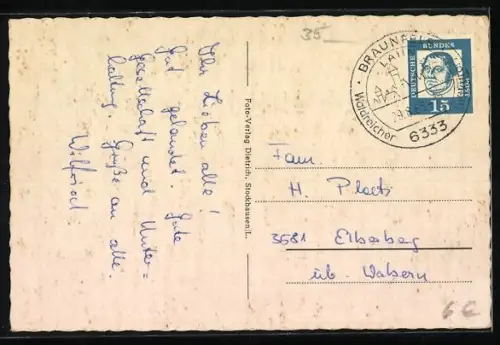 35
Ihr Lieben alle!
Gut gelandet. Gute
Gesellschaft und Unter=
haltung. Grüße an alle.
Wilfried
Foto-Verlag Dietrich, Stockhausen/L.
BRAUNFELS
LAHN
Waldreicher
6333
DEUTSCHE BUNDES
15
Fam.
H.
3581 Elberberg
üb. Wabern
6 €